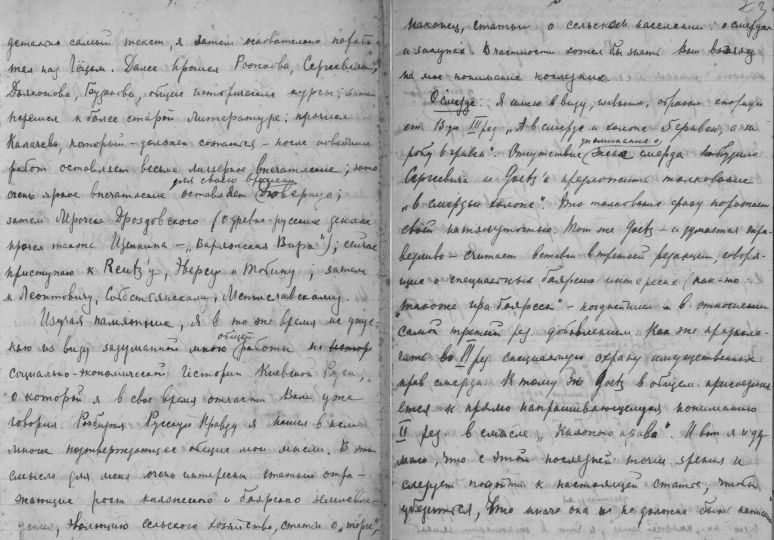 детально самый текст, я затем основательно порабо-
тал над Гётцем. Далее прошел Рожкова, Сергеевича,
Дьяконова, Гудзяква, общие исторические курсы; затем
перешел к более старой литературе; прошел
Калачева, который – должен сознаться – после новейших
работ оставляет весьма мизерное впечатление; зато
очень яркое впечатление для своего времени оставляет Тоберица;
затем Мрочек-Дроздовского (О древне-русских деньгах
прочел также Циткина – „Варлонская Вира“); сейчас
приступаю к Reutz'у, Эверсу и Тобину; затем
к Леонтовичу, Собестианскому, Мстиславскому.
Изучая памятник, я в то же время не упус-
каю из виду задуманной мною общей работы по
социально-экономической истории Киевской Руси,
о которой я в свое время отчасти Вам уже
говорил. Разбирая Русскую Правду я нашел в ней
многое подтверждающее общие мои мысли. В этом
смысле для меня очень интересны статьи отра-
жающие рост княжеского и боярского землевла-
дения, эволюцию сельского хозяйства, статьи о „торге“,
23
наконец, статьи о сельском населении: о смердах
и закупах. В частности хотел бы знать Ваш взгляд
на мое понимание последних.
О смерде: Я имею в виду, главным образом спорную
ст. 13ую III ред. „А в смерде и холопе 5 гривен, а за
робу 6 гривен“. Отсутствие упоминания о смерда побудило
Сергеевича и Goetz'а предложить толкование
„в смердьи холопе“. Это толкование сразу поражает
своей натянутостью. Тот же Goetz – и думается спра-
ведливо – считает вставки в третьей редакции, говоря-
щие о специальных боярских интересах (как-то
„такоже и за боярески“ – позднейшим и в отношении
самой третьей ред. добавлением. Как же предпола-
гать во III ред. специальную охрану имущественных
прав смерда. К тому же Goetz в общем присоединя-
ется к прямо напрашивающемуся пониманию
II ред. в смысле „Княжого права“. И вот я и ду-
маю, что с этой последней точки зрения и
следует подойти к настоящей статье, чтобы
убедиться, что иначе она и не должна быть